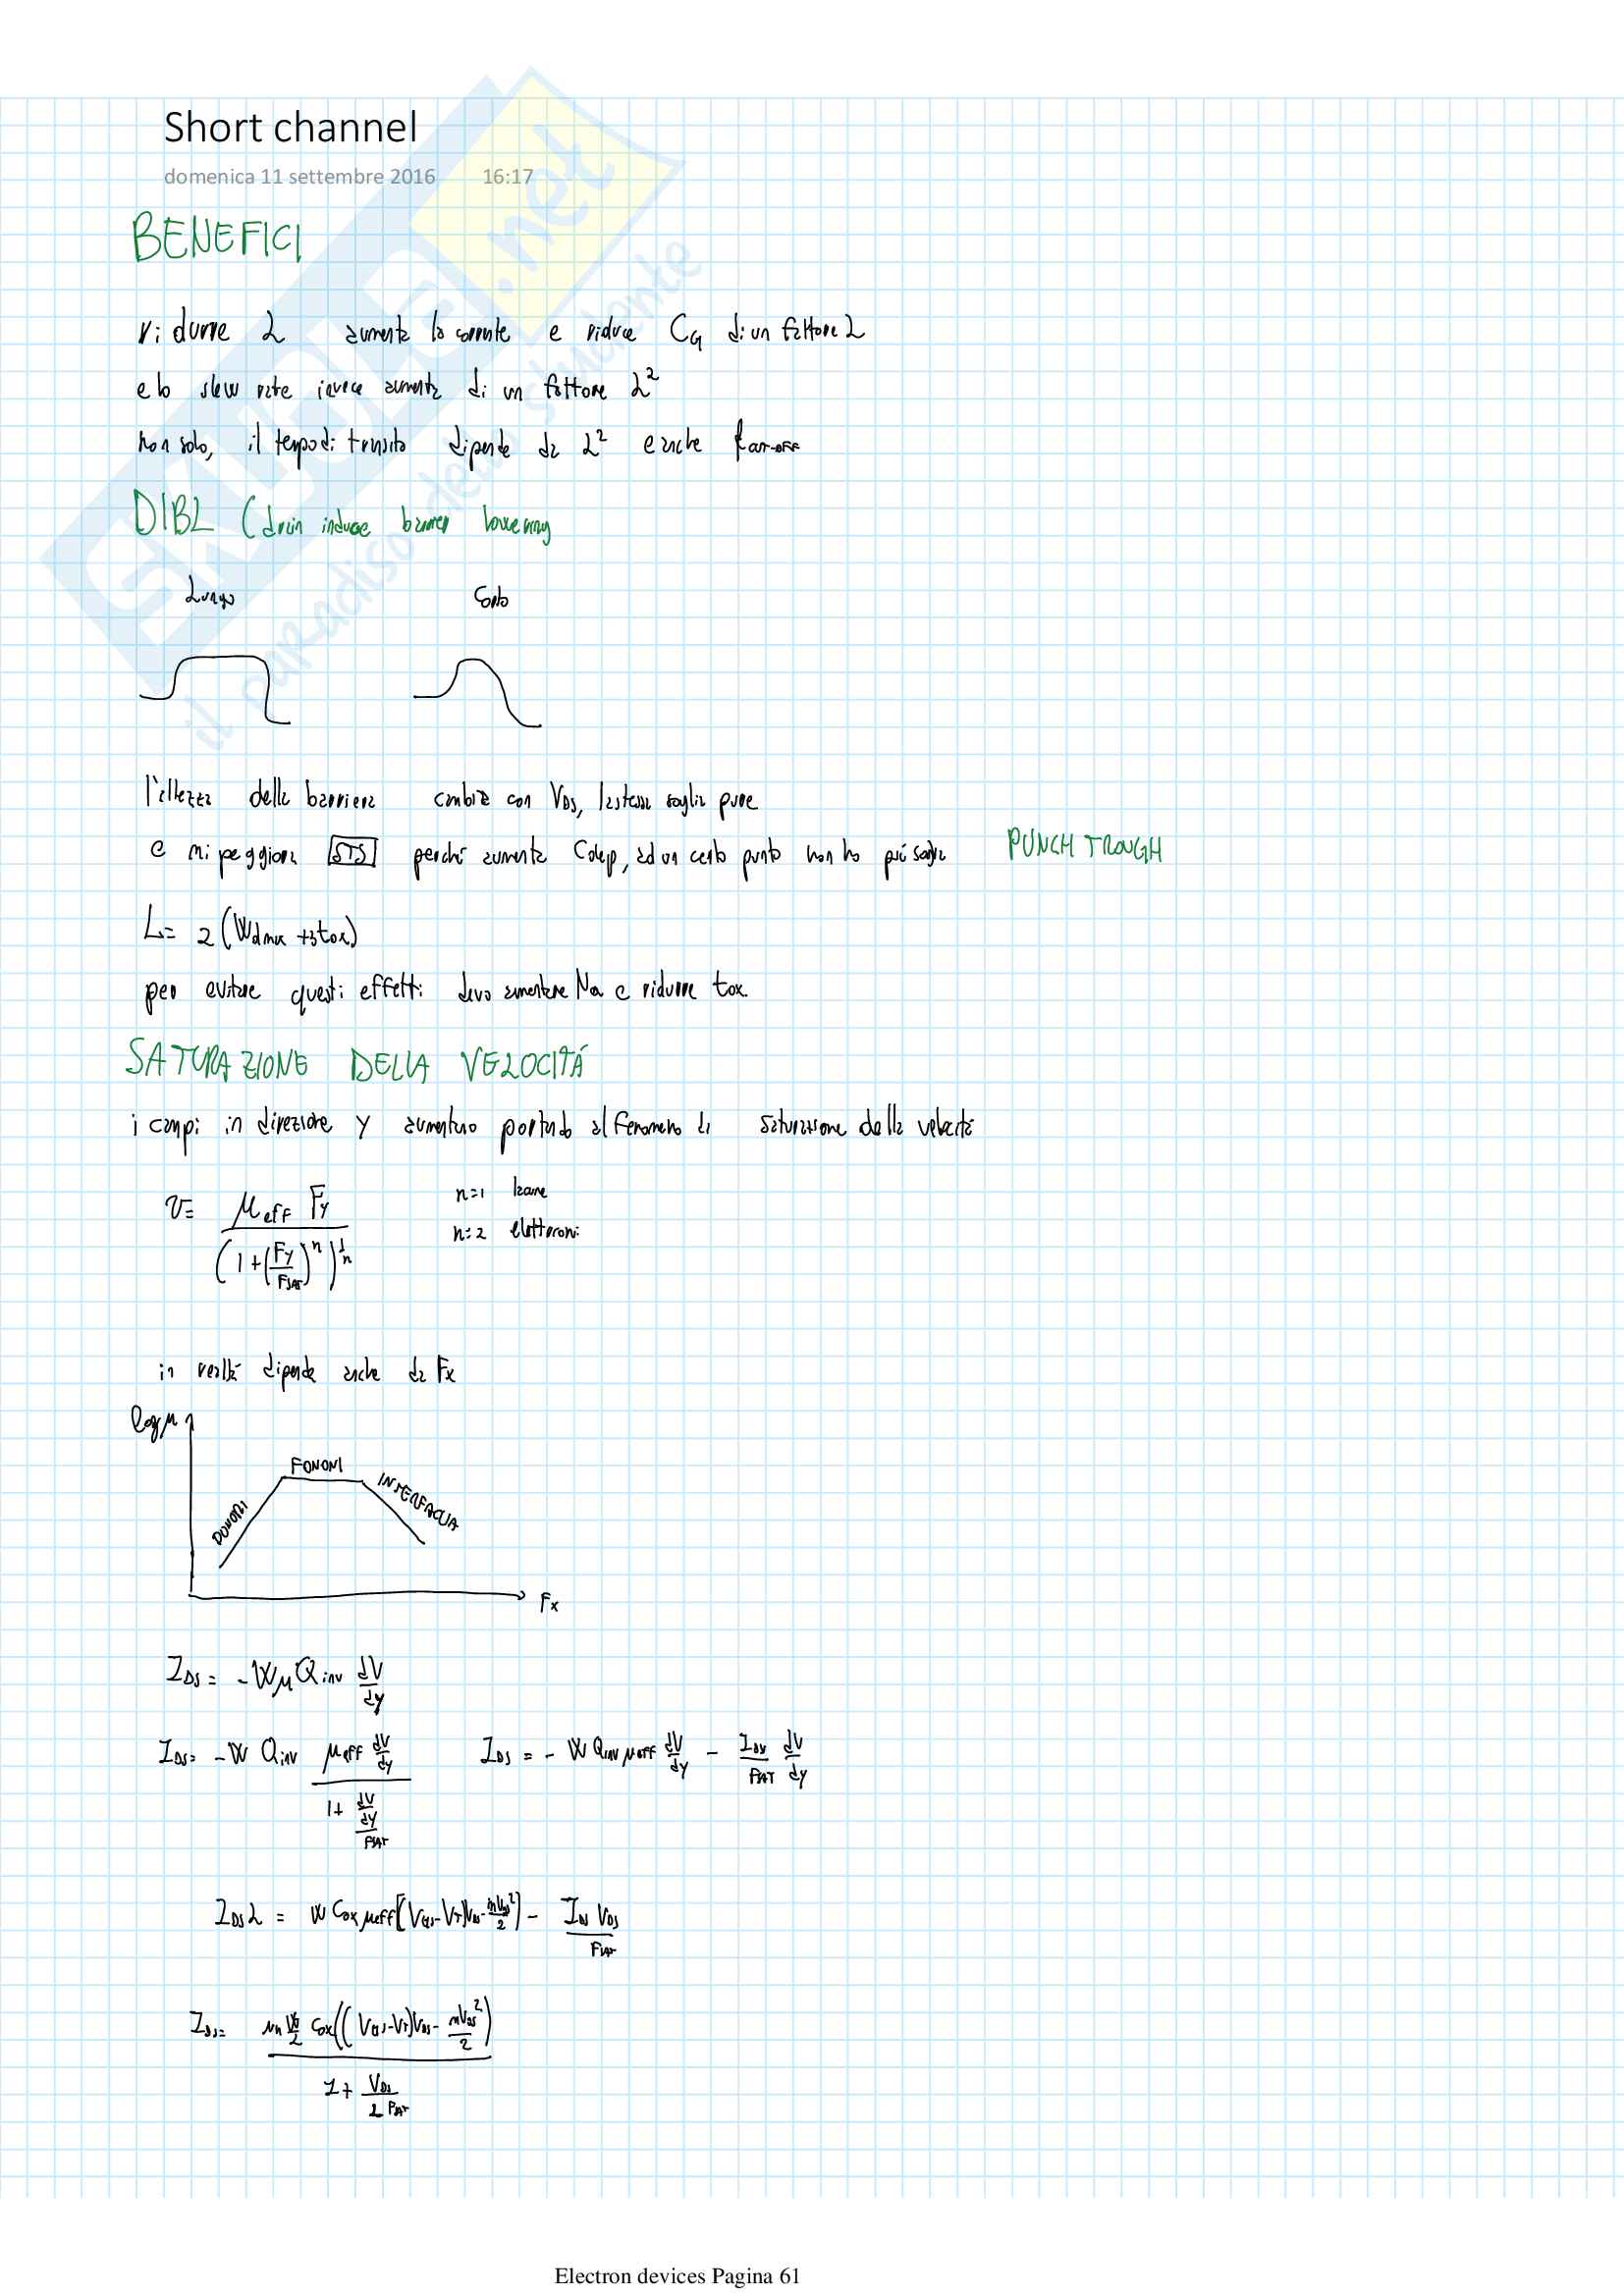 Short channel
domenica 11 settembre 2016 16:17
BENEFICI
ridurre L aumenta la corrente e riduce CG di un fattore L
e lo slew rate invece aumenta di un fattore L²
non solo, il tempo di transito dipende da L² e anche fCUT-OFF
DIBL (drain induce barrier lowering
Lungo Corto
l'altezza della barriera cambia con VDS, la stessa soglia pure
e mi peggiora STS perché aumenta Cdep, ad un certo punto non ho più soglia PUNCH TROUGH
L= 2(Wdmax +3tox)
per evitare questi effetti devo aumentare Na e ridurre tox
SATURAZIONE DELLA VELOCITÁ
i campi in direzione y aumentano portando al fenomeno di saturazione della velocità
v= μeff Fy / (1+(Fy/FSAT)^n)^(1/n) n=1 lacune
n=2 elettroni
in realtà dipende anche da Fx
log μ
FONONI
DONORI
INTERFACCIA
Fx
IDS = -WμQinv dV/dy
IDS= -W Qinv μeff dV/dy / (1+ dV/dy / FSAT) IDS = - W Qinv μeff dV/dy - IDS/FSAT dV/dy
IDS L = W Cox μeff[(VGS-VT)VDS - mVDS²/2] - IDS VDS / FSAT
IDS= μn W/L Cox((VGS-VT)VDS - mVDS²/2) / (1+ VDS / L FSAT)
Electron devices Pagina 61
il paradiso dello studente
SKUOLA.net